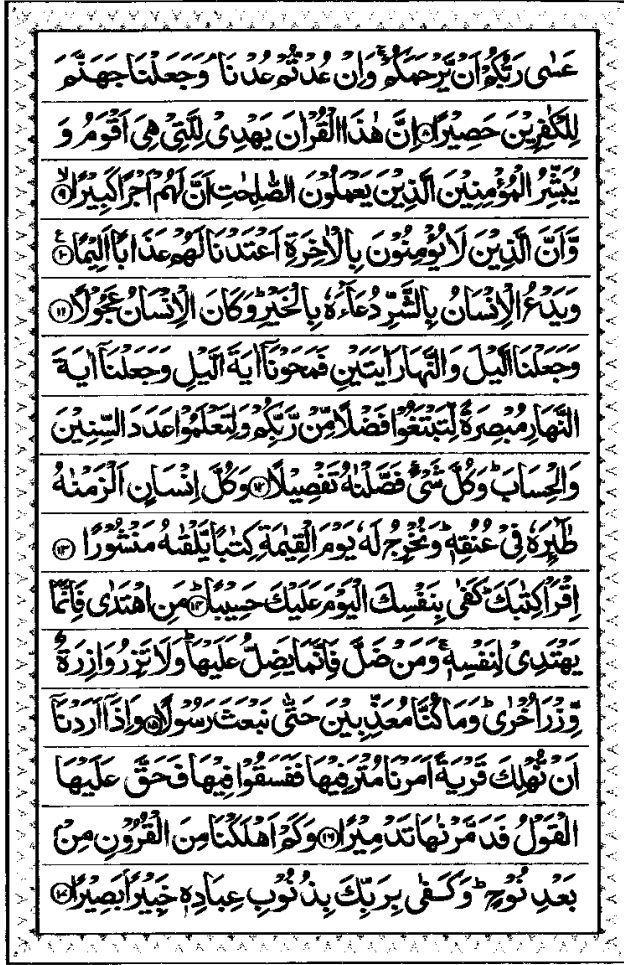 عَسٰى رَبُّكُمْ اَنْ يَّرْحَمَكُمْ ۚ وَاِنْ عُدْتُّمْ عُدْنَا ۘ وَجَعَلْنَا جَهَنَّمَ
لِلْكٰفِرِيْنَ حَصِيْرًا ۝۸ اِنَّ هٰذَا الْقُرْاٰنَ يَهْدِىْ لِلَّتِىْ هِىَ اَقْوَمُ وَ
يُبَشِّرُ الْمُؤْمِنِيْنَ الَّذِيْنَ يَعْمَلُوْنَ الصّٰلِحٰتِ اَنَّ لَهُمْ اَجْرًا كَبِيْرًا ۝۹ ۙ
وَّاَنَّ الَّذِيْنَ لَا يُؤْمِنُوْنَ بِالْاٰخِرَةِ اَعْتَدْنَا لَهُمْ عَذَابًا اَلِيْمًا ۝۱۰ ع
وَيَدْعُ الْاِنْسَانُ بِالشَّرِّ دُعَآءَهٗ بِالْخَيْرِ ؕ وَكَانَ الْاِنْسَانُ عَجُوْلًا ۝۱۱
وَجَعَلْنَا الَّيْلَ وَالنَّهَارَ اٰيَتَيْنِ فَمَحَوْنَاۤ اٰيَةَ الَّيْلِ وَجَعَلْنَاۤ اٰيَةَ
النَّهَارِ مُبْصِرَةً لِّتَبْتَغُوْا فَضْلًا مِّنْ رَّبِّكُمْ وَلِتَعْلَمُوْا عَدَدَ السِّنِيْنَ
وَالْحِسَابَ ؕ وَكُلَّ شَىْءٍ فَصَّلْنٰهُ تَفْصِيْلًا ۝۱۲ وَكُلَّ اِنْسَانٍ اَلْزَمْنٰهُ
طٰٓئِرَهٗ فِىْ عُنُقِهٖ ؕ وَنُخْرِجُ لَهٗ يَوْمَ الْقِيٰمَةِ كِتٰبًا يَّلْقٰىهُ مَنْشُوْرًا ۝۱۳
اِقْرَاْ كِتٰبَكَ ؕ كَفٰى بِنَفْسِكَ الْيَوْمَ عَلَيْكَ حَسِيْبًا ۝۱۴ ؕ مَنِ اهْتَدٰى فَاِنَّمَا
يَهْتَدِىْ لِنَفْسِهٖ ۚ وَمَنْ ضَلَّ فَاِنَّمَا يَضِلُّ عَلَيْهَا ؕ وَلَا تَزِرُ وَازِرَةٌ
وِّزْرَ اُخْرٰى ؕ وَمَا كُنَّا مُعَذِّبِيْنَ حَتّٰى نَبْعَثَ رَسُوْلًا ۝۱۵ وَاِذَاۤ اَرَدْنَاۤ
اَنْ نُّهْلِكَ قَرْيَةً اَمَرْنَا مُتْرَفِيْهَا فَفَسَقُوْا فِيْهَا فَحَقَّ عَلَيْهَا
الْقَوْلُ فَدَمَّرْنٰهَا تَدْمِيْرًا ۝۱۶ وَكَمْ اَهْلَكْنَا مِنَ الْقُرُوْنِ مِنْۢ
بَعْدِ نُوْحٍ ؕ وَكَفٰى بِرَبِّكَ بِذُنُوْبِ عِبَادِهٖ خَبِيْرًۢا بَصِيْرًا ۝۱۷